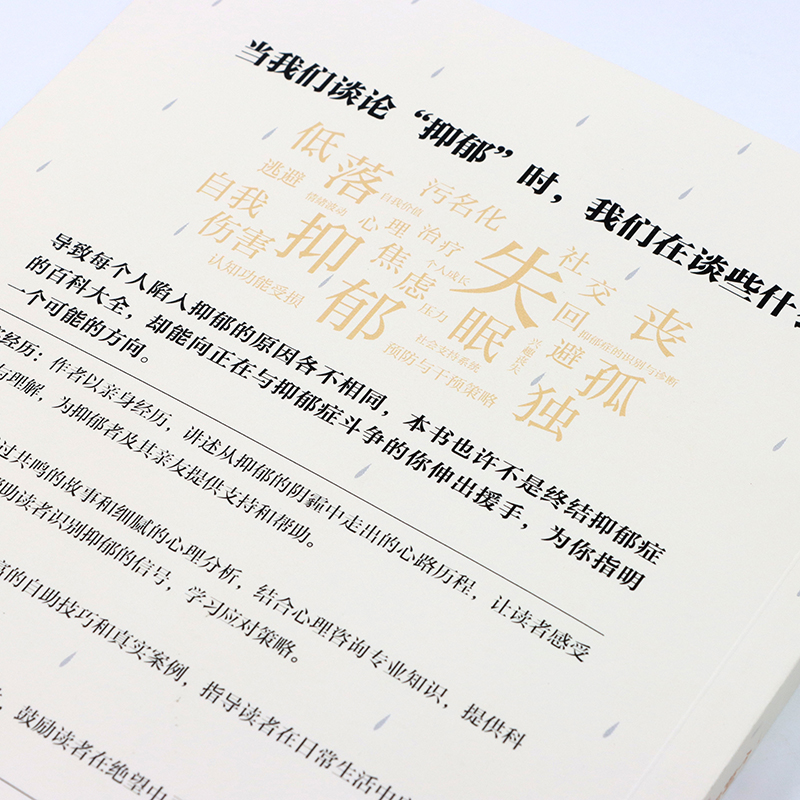 当我们谈论“抑郁”时，我们在谈些什
低落
逃避
自我价值
污名化
情绪波动
自我伤害
心理治疗
抑郁
焦虑
个人成长
压力
失眠
社交回避
丧
孤独
认知功能受损
社会支持系统
兴趣丧失
抑郁症的识别与诊断
预防与干预策略
导致每个人陷入抑郁的原因各不相同，本书也许不是终结抑郁症
的百科大全，却能向正在与抑郁症斗争的你伸出援手，为你指明
一个可能的方向。
经历：作者以亲身经历，讲述从抑郁的阴霾中走出的心路历程，让读者感受
与理解，为抑郁者及其亲友提供支持和帮助。
过共鸣的故事和细腻的心理分析，结合心理咨询专业知识，提供科
帮助读者识别抑郁的信号，学习应对策略。
富的自助技巧和真实案例，指导读者在日常生活中
，鼓励读者在绝望中